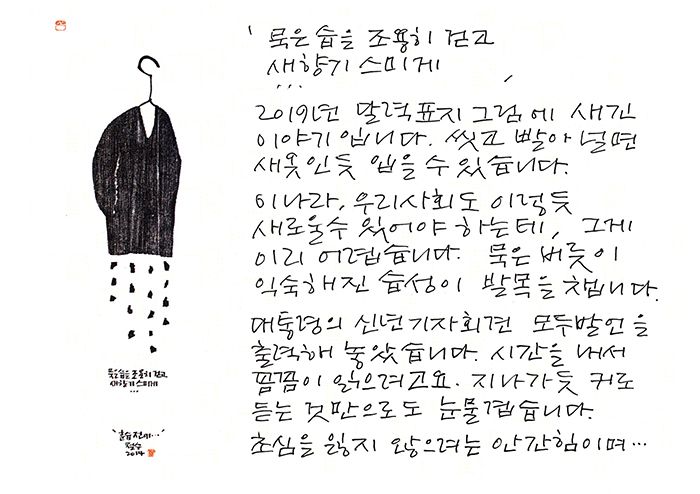 ' 묵은 습을 조용히 걷고
새향기 스미게 '
...
2019년 달력표지그림에 새긴
이야기입니다. 씻고 빨아 널면
새옷인듯 입을 수 있습니다.
이나라, 우리사회도 이렇듯
새로울수 있어야 하는데, 그게
이리 어렵습니다. 묵은 버릇이
익숙해진 습성이 발목을 챕니다.
대통령의 신년기자회견 모두발언을
출력해 놓았습니다. 시간을 내서
꼼꼼이 읽으려고요. 지나가듯 귀로
듣는 것만으로도 눈물겹습니다.
초심을 잃지 않으려는 안간힘이며...
묵은 습을 조용히 걷고
새향기 스미게
...
철수
2019